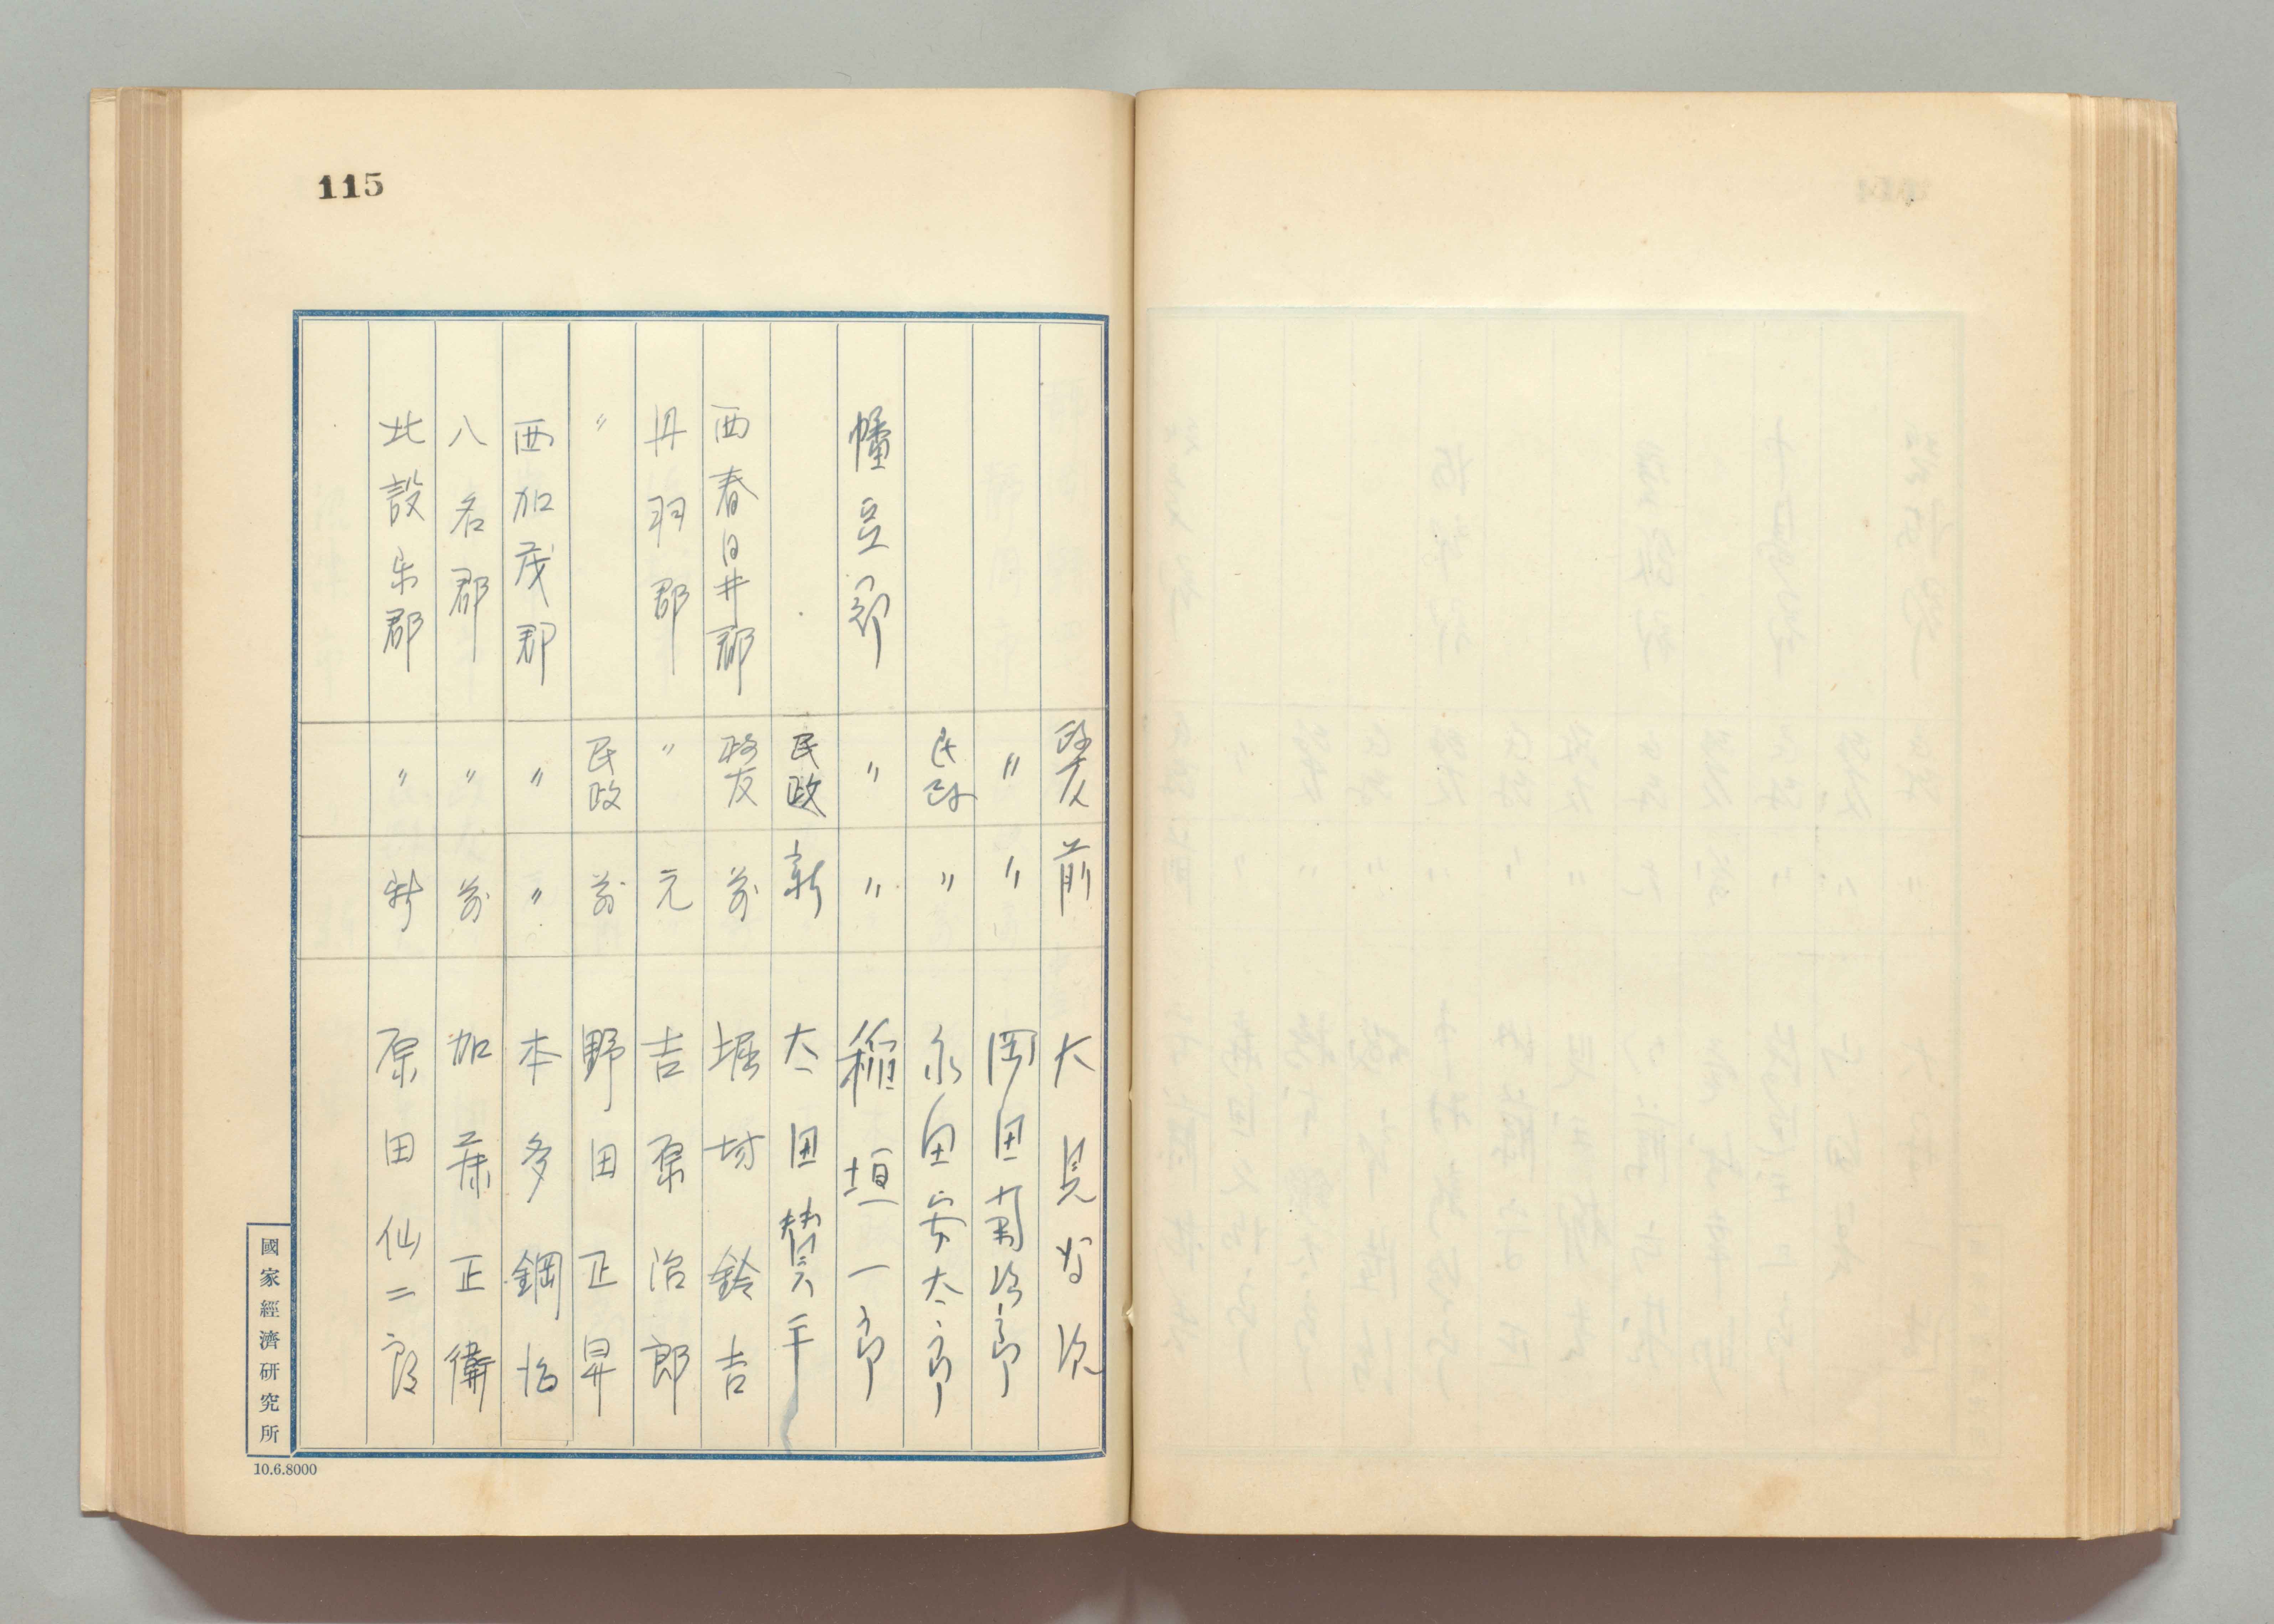 115
政友 前 大見為次
〃 〃 岡田菊治郎
民政 〃 永田安太郎
幡豆郡 〃 〃 稲垣一郎
民政 新 太田賛平
西春日井郡 政友 前 堀場鈴吉
丹羽郡 〃 元 吉原治郎
〃 民政 前 野田正昇
西加茂郡 〃 〃 本多鋼治
八名郡 〃 前 加藤正衛
北設楽郡 〃 新 原田仙二郎
國家經濟研究所
10.6.8000